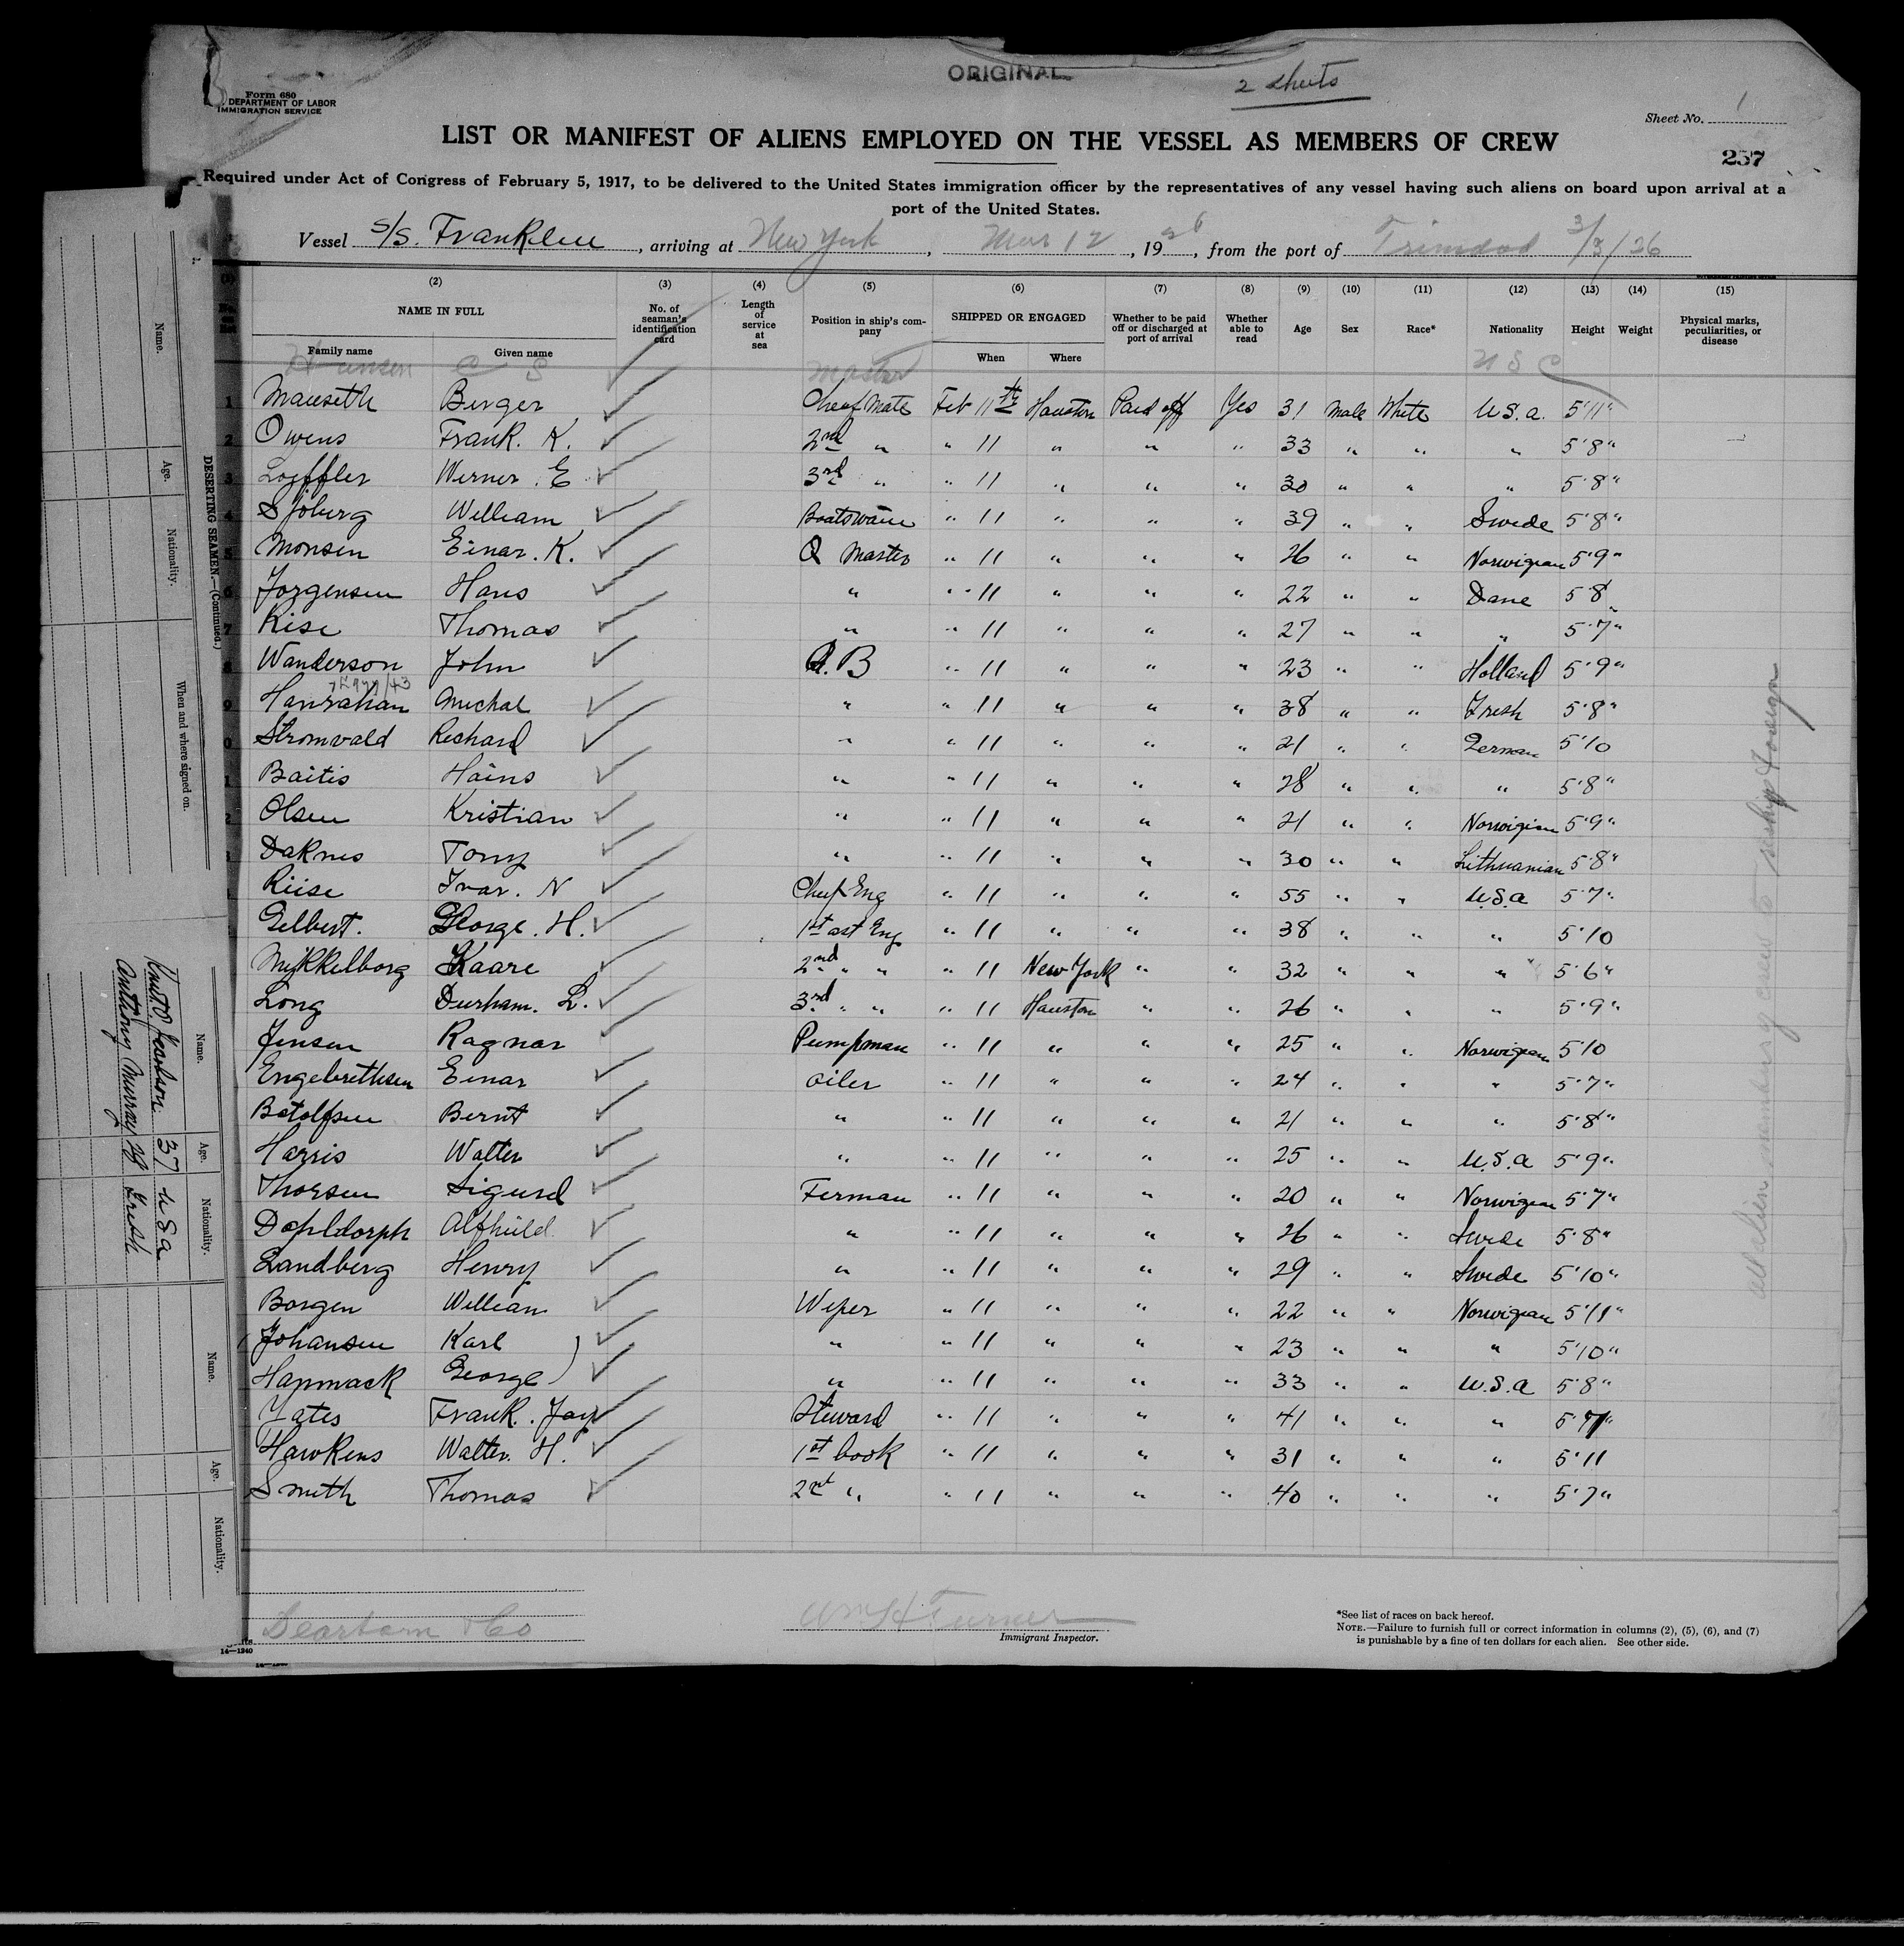 ORIGINAL
2 Sheets
Form 680
DEPARTMENT OF LABOR
IMMIGRATION SERVICE
Sheet No. 1
LIST OR MANIFEST OF ALIENS EMPLOYED ON THE VESSEL AS MEMBERS OF CREW
257
Required under Act of Congress of February 5, 1917, to be delivered to the United States immigration officer by the representatives of any vessel having such aliens on board upon arrival at a
port of the United States.
Vessel S/S. Franklin, arriving at New York, Mar 12, 1926, from the port of Trinidad 3/3/26
(2) (3) (4) (5) (6) (7) (8) (9) (10) (11) (12) (13) (14) (15)
NAME IN FULL No. of seaman's identification card Length of service at sea Position in ship's company SHIPPED OR ENGAGED Whether to be paid off or discharged at port of arrival Whether able to read Age Sex Race* Nationality Height Weight Physical marks, peculiarities, or disease
Family name Given name When Where
Hansen C S Master U S C
1 Mauseth Berger Cheuf Mate Feb 11th Houston Paid off Yes 31 Male White U.S.a. 5'11"
2 Owens Frank. K. 2nd " " 11 " " " 33 " " " 5'8"
3 Loeffler Werner. E 3rd " " 11 " " " 30 " " " 5'8"
4 Sjoberg William Boatswain " 11 " " " 39 " " Swede 5'8"
5 Monsen Einar. K. Q Master " 11 " " " 26 " " Norwigian 5'9"
6 Jorgensen Hans " " 11 " " " 22 " " Dane 5'8"
7 Rise Thomas " " 11 " " " 27 " " " 5'7"
8 Wanderson John A.B " 11 " " " 23 " " Holland 5'9"
9 Hanrahan Michal " " 11 " " " 38 " " Iresh 5'8"
0 Stromvald Richard " " 11 " " " 21 " " German 5'10
1 Baitis Hains " " 11 " " " 28 " " " 5'8"
2 Olsen Kristian " " 11 " " " 21 " " Norwigian 5'9"
3 Daknis Tony " " 11 " " " 30 " " Lithuanian 5'8"
Riise Ivar. N Cheif Eng " 11 " " " 55 " " U.S.a 5'7"
Gelbert. George. H. 1st ast Eng " 11 " " " 38 " " " 5'10
Mykkelborg Kaare 2nd " " " 11 New York " " 32 " " " 5'6"
Long Durham. L. 3rd " " " 11 Houston " " 26 " " " 5'9"
Jensen Ragnar Pumpman " 11 " " " 25 " " Norwigian 5'10
Engebrethsen Einar oiler " 11 " " " 24 " " " 5'7"
Botolfsen Bernt " " 11 " " " 21 " " " 5'8"
Harris Walter " " 11 " " " 25 " " U.S.a 5'9"
Thorsen Sigurd Firman " 11 " " " 20 " " Norwigian 5'7"
Alfhild " " 11 " " " 26 " " Swede 5'8"
Landberg Henry " " 11 " " " 29 " " Swede 5'10"
Borgen William Weper " 11 " " " 22 " " Norwigian 5'11"
Johansen Karl " " 11 " " " 23 " " " 5'10"
Hammack George " " 11 " " " 33 " " U.S.a 5'8"
Yates Frank. Jay Steward " 11 " " " 41 " " " 5'7"
Hawkens Walter. H. 1st Cook " 11 " " " 31 " " " 5'11
Smith Thomas 2nd " " 11 " " " 40 " " " 5'7"
all alien members of crew to reship foreign
Dearborn & Co
Wm H Turner
Immigrant Inspector.
*See list of races on back hereof.
NOTE.—Failure to furnish full or correct information in columns (2), (5), (6), and (7)
is punishable by a fine of ten dollars for each alien. See other side.
14—1240
DESERTING SEAMEN.—(Continued.)
Name. Age. Nationality. When and where signed on.
Name. Age. Nationality.
37 U S a
Anthony Murray 28 Iresh
Name. Age. Nationality.